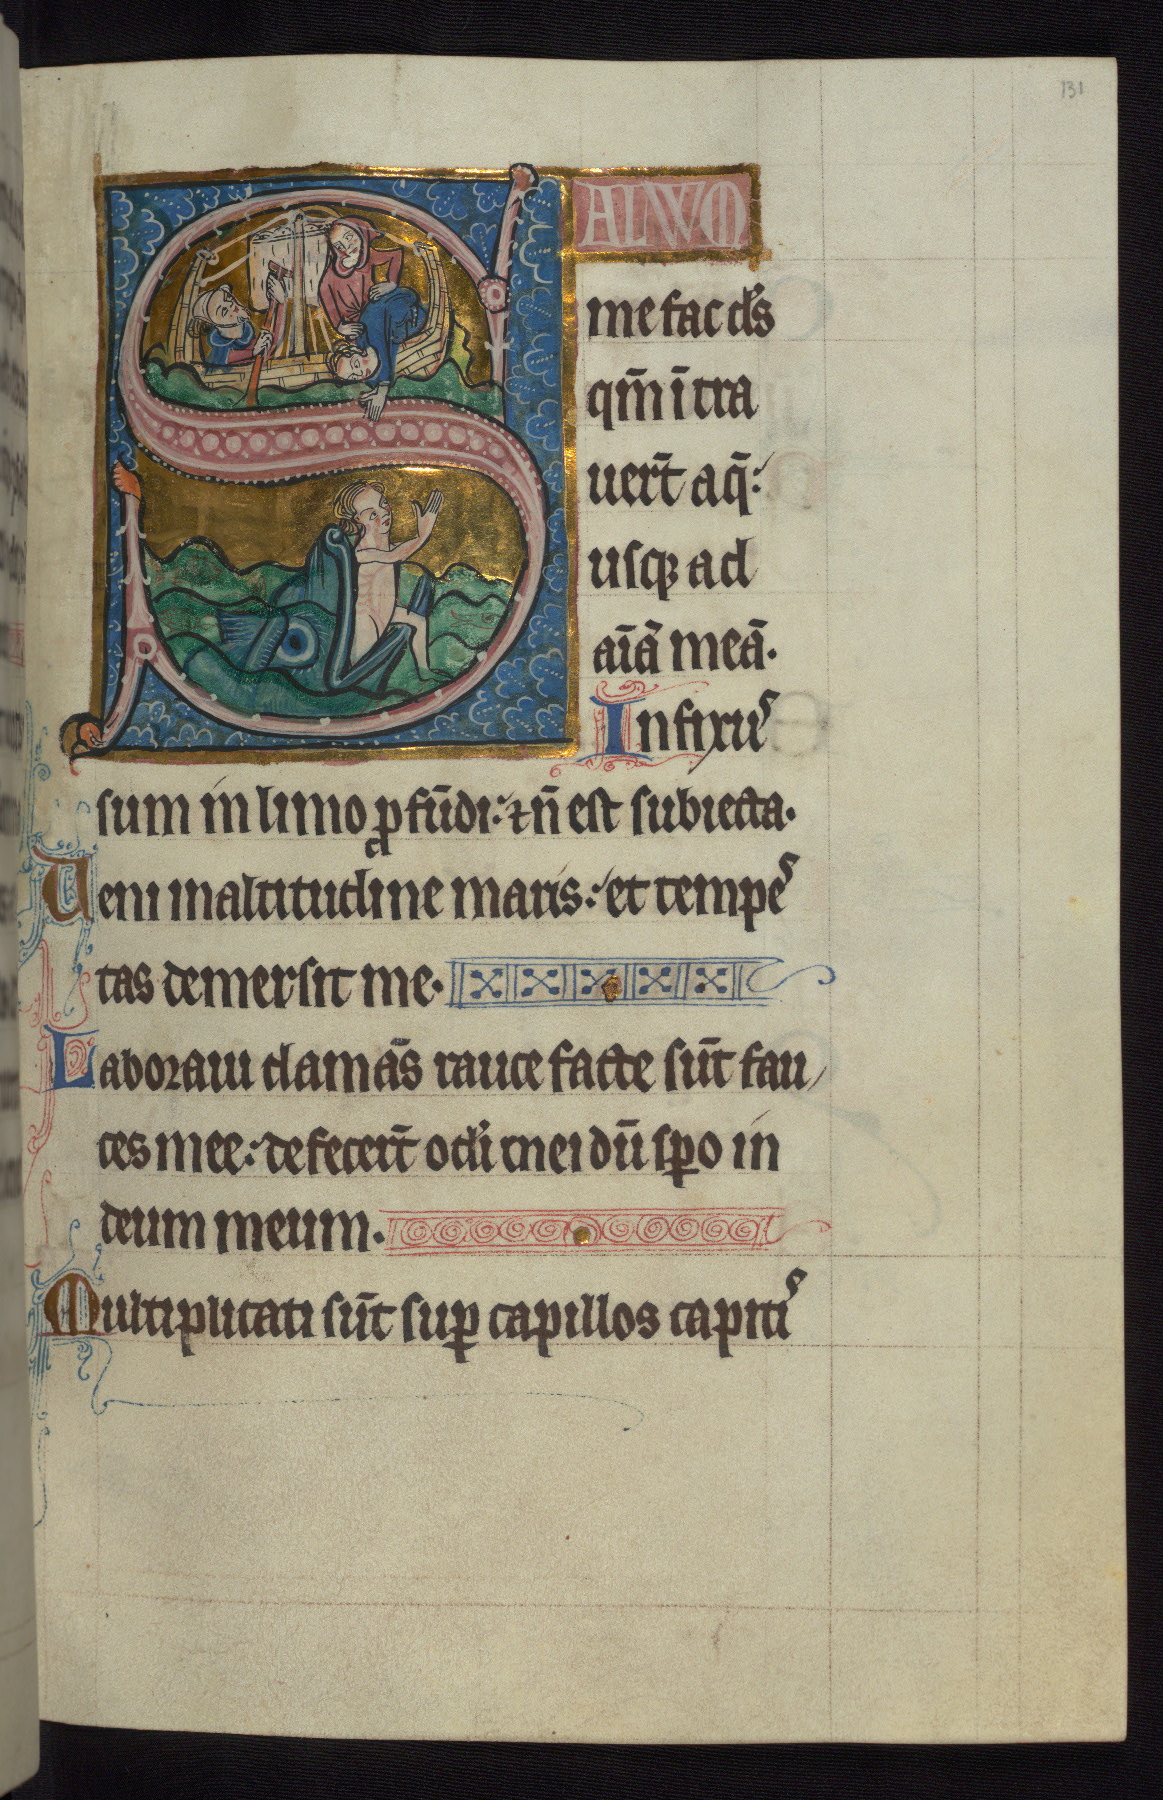 131
SALVVM
me fac d̄s
qm̄ ītra
uer̄t aq̄:
usq; ad
aīā meā.
Infixus
sum in limo ꝓfūdi: ⁊ n̄ est subiecta.
Ueni in altitudine maris: et tempes
tas demersit me.
Laboraui clamās rauce facte sūt fau/
ces mee: defecer̄t oc̄li mei dū sꝑo in
deum meum.
Multiplicati sūt suꝑ capillos capitis